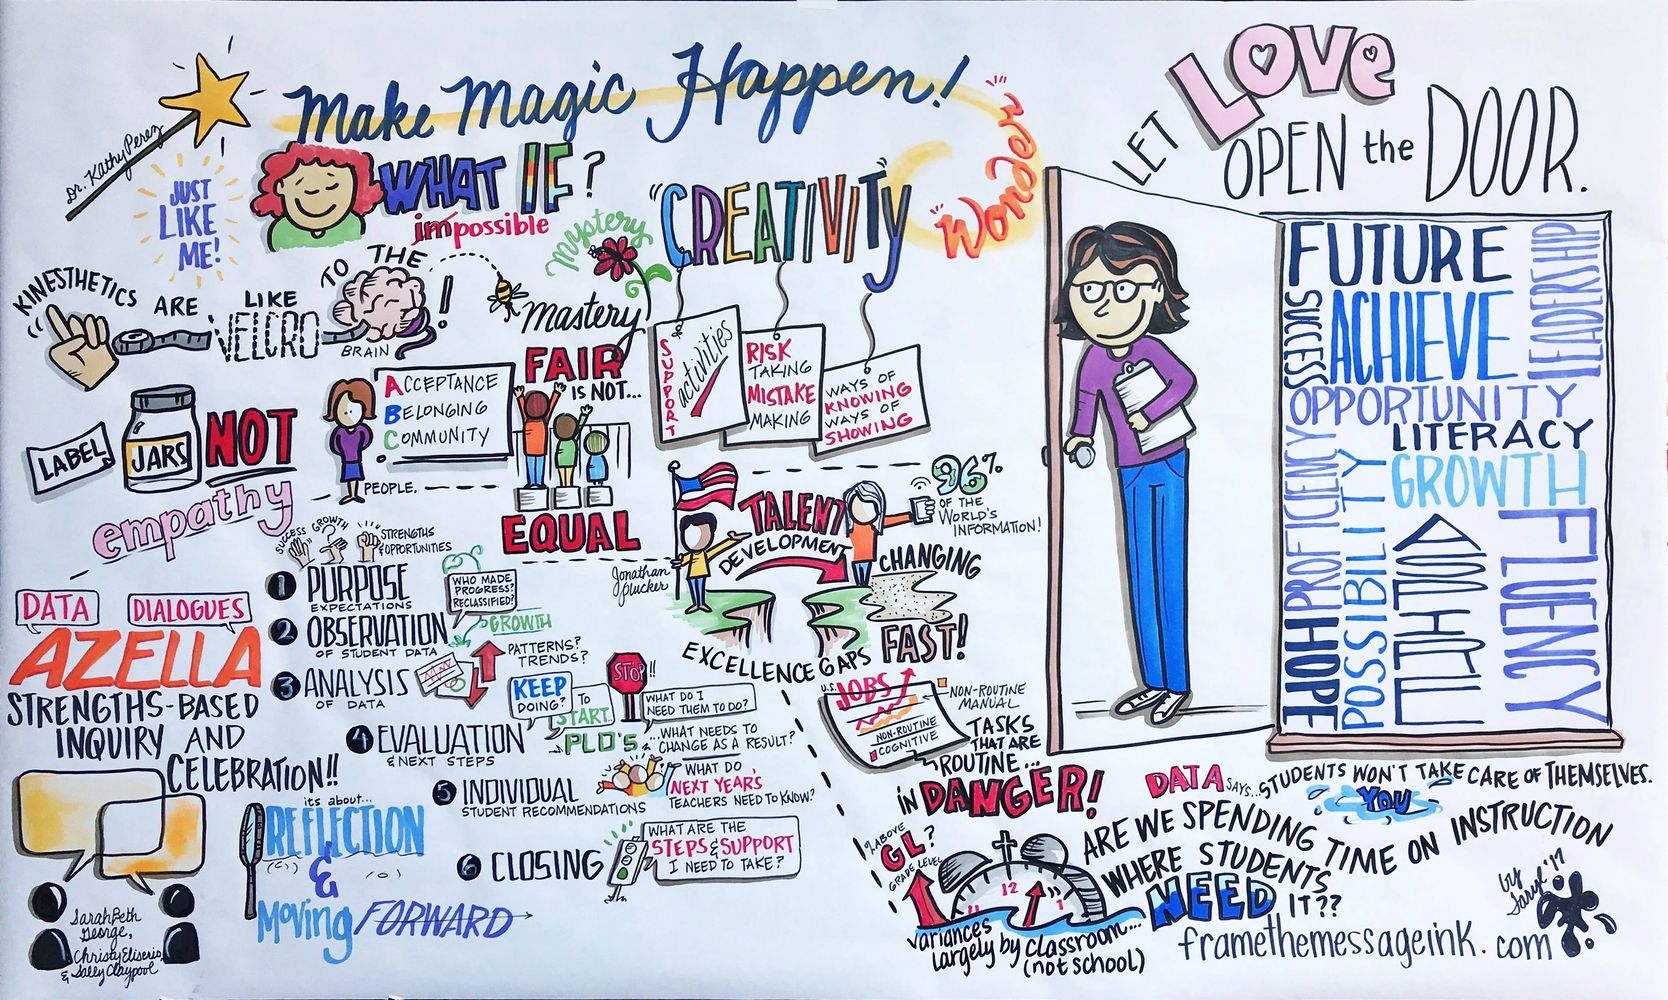 Make Magic Happen!
Dr. Kathy Perez
JUST
LIKE
ME!
WHAT IF?
impossible
"CREATIVITY"
"Wonder"
mystery
mastery
KINESTHETICS ARE LIKE VELCRO TO THE BRAIN!
LABEL
JARS
NOT
empathy
ACCEPTANCE
BELONGING
COMMUNITY
PEOPLE.
FAIR
IS NOT...
EQUAL
SUPPORT
activities
RISK
TAKING
MISTAKE
MAKING
WAYS OF
KNOWING
WAYS OF
SHOWING
TALENT
DEVELOPMENT
Jonathan
Plucker
EXCELLENCE GAPS
96%
OF THE
WORLD'S
INFORMATION!
CHANGING
FAST!
U.S. JOBS
NON-ROUTINE
COGNITIVE
NON-ROUTINE
MANUAL
TASKS
THAT ARE
ROUTINE...
IN DANGER!
DATA
DIALOGUES
AZELLA
STRENGTHS-BASED
INQUIRY AND
CELEBRATION!!
SarahBeth
George,
Christy Eliserio,
& Sally Claypool
it's about...
REFLECTION
&
Moving FORWARD
SUCCESS
GROWTH
?
STRENGTHS
& OPPORTUNITIES
1 PURPOSE
EXPECTATIONS
2 OBSERVATION
OF STUDENT DATA
WHO MADE
PROGRESS?
RECLASSIFIED?
GROWTH
3 ANALYSIS
OF DATA
PATTERNS?
TRENDS?
4 EVALUATION
& NEXT STEPS
KEEP
DOING?
TO
START
STOP!!
PLD'S
WHAT DO I
NEED THEM TO DO?
...WHAT NEEDS TO
CHANGE AS A RESULT?
5 INDIVIDUAL
STUDENT RECOMMENDATIONS
WHAT DO
NEXT YEAR'S
TEACHERS NEED TO KNOW?
6 CLOSING
WHAT ARE THE
STEPS & SUPPORT
I NEED TO TAKE?
LET LOVE
OPEN the DOOR.
FUTURE
SUCCESS
ACHIEVE
LEADERSHIP
OPPORTUNITY
LITERACY
GROWTH
PROFICIENCY
HOPE
POSSIBILITY
ASPIRE
FLUENCY
DATA SAYS... STUDENTS WON'T TAKE CARE OF THEMSELVES.
YOU
ARE WE SPENDING TIME ON INSTRUCTION
WHERE STUDENTS
NEED IT??
ABOVE
GL?
GRADE LEVEL
11
12
1
variances
largely by classroom...
(not school)
framethemessageink.com
by
Taryl '17